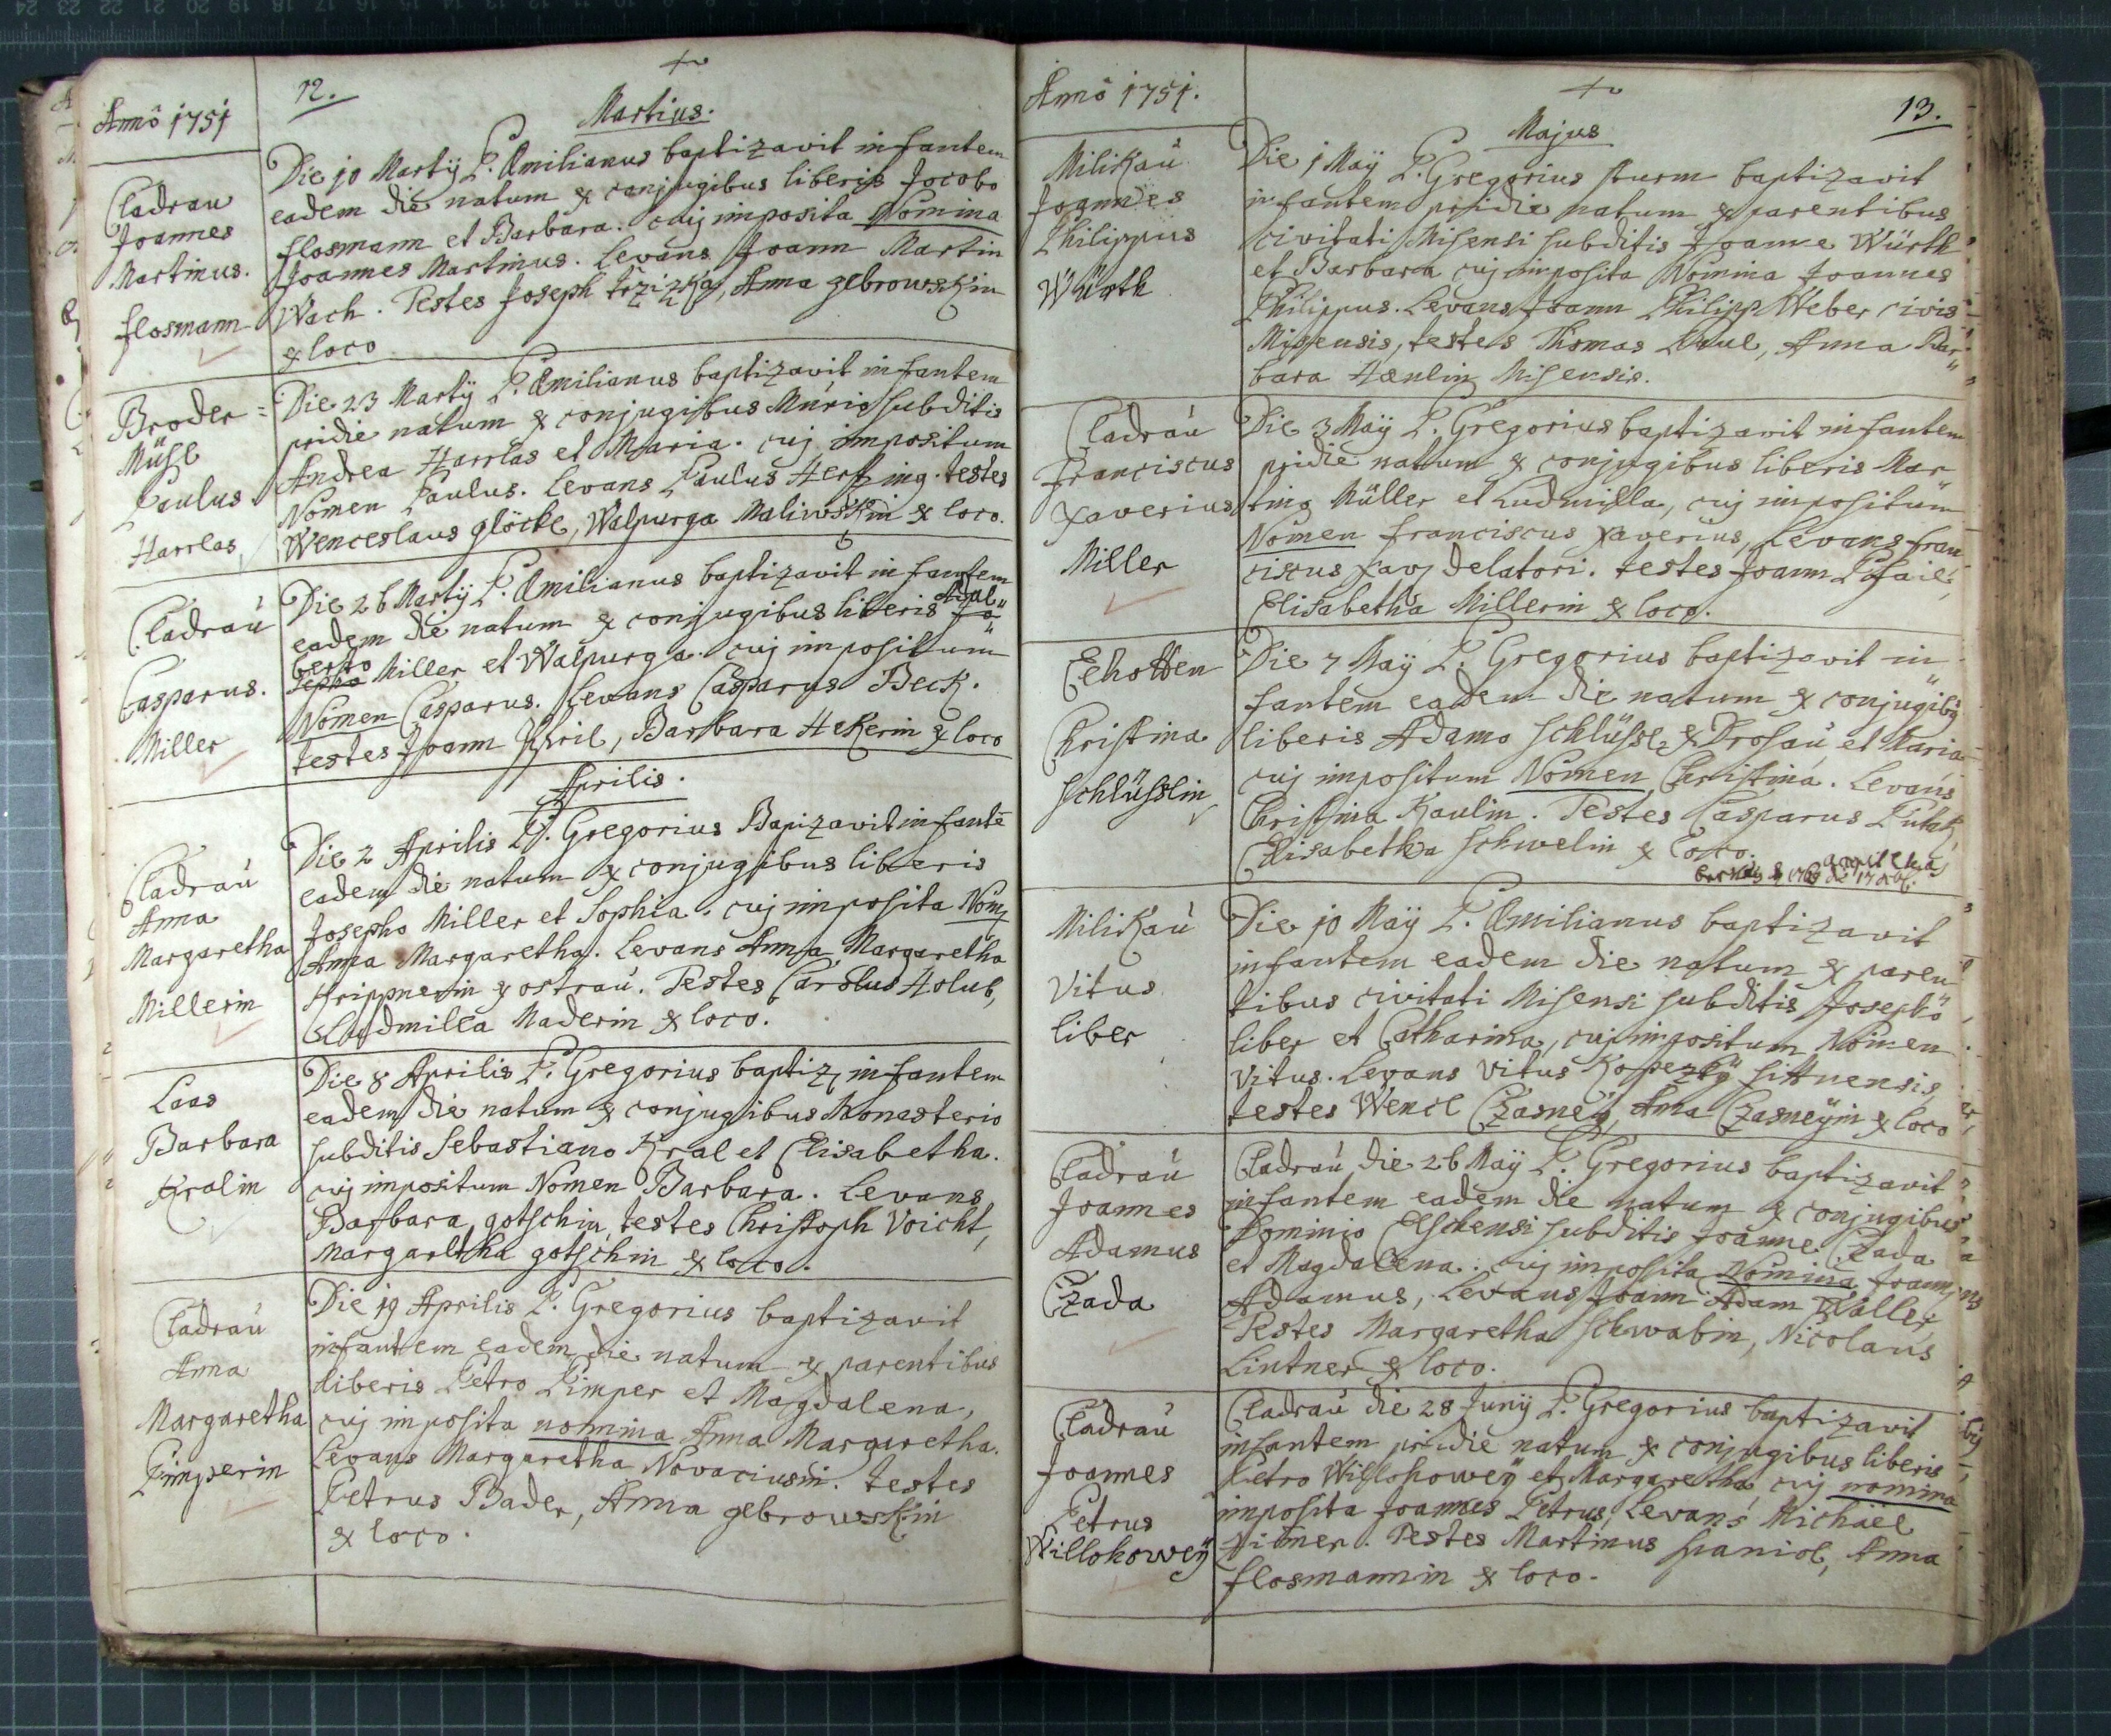 Anno 1751
12.
Martius.
Cladrau
Joannes
Martinus.
flosmann
Die 10 Martÿ P. Æmilianus baptizavit infantem
eadem die natum ex conjugibus liberis Jacobo
flosmann et Barbara. cuj imposita Nomina
Joannes Martinus. Levans Joann Martin
Wach. Testes Joseph Anna gebrowskin
ex loco
Broder =
Mühl
Paulus
Harrlas
Die 23 Martÿ P. Æmilianus baptizavit infantem
pridie natum ex conjugibus subditis
Andrea Harrlas et Maria. cuj impositum
Nomen Paulus. Levans Paulus testes
Wenceslaus glöckl, Walpurga Maliwskin ex loco.
Cladraú
Casparus.
Miller
Die 26 Martÿ P. Æmilianus baptizavit infantem
eadem die natum ex conjugibus liberis Adal Jo
berto sepho Miller et Walpurga. cuj impositum
Nomen Casparus. Levans Casparus Beck.
testes Joann Barbara Hekerin ex loco
Aprilis.
Cladraú
Anna
Margaretha
Millerin
Die 2 Aprilis P. Gregorius Bapizavit infantē
eadem die natum ex conjugibus liberis
Josepho Miller et Sophia. cuj imposita Nom
Anna Margaretha. Levans Anna Margaretha
Krippnerin ex ostraú. Testes Carolus Holub,
Ludmilla Maderin ex loco.
Laas
Barbara
Kralin
Die 8 Aprilis P. Gregorius baptiz, infantem
eadem die natum ex conjugibus Monasterio
subditis Sebastiano Kral et Elisabetha.
cuj impositum Nomen Barbara. Levans
Barbara gotschin, testes Christoph Voicht,
Margaretha gotschin ex loco.
Cladraú
Anna
Margaretha
Pimperin
Die 19 Aprilis P. Gregorius baptizavit
infantem eadem die natum ex parentibus
liberis Petro Pimper et Magdalena,
cuj imposita nomina Anna Margaretha.
Levans Margaretha Novaciusin. testes
Petrus Bader, Anna gebrowskin
ex loco.
Anno 1751.
13.
Majus
Milikaú
Joannes
Philippus
Würth
Die 1 Maÿ P. Gregorius sturm baptizavit
infantem pridie natum ex parentibus
civitati Misensi subditis Joanne Würth
et Barbara cuj imposita Nomina Joannes
Philippus. Levans Joann Philipp Weber civis
Misensis, testes Thomas Paul, Anna Bar
bara Hænlin Misensis.
Cladraú
Franciscus
Xaverius
Miller
Die 3 Maÿ P. Gregorius baptizavit infantem
pridie natum ex conjugibus liberis Mar
tino Müller et Ludmilla, cuj impositum
Nomen franciscus Xaverius, Levans fran
ciscus Xav, Delatori. testes Joann
Elisabetha Millerin ex loco.
Elhotten
Christina
schlüsslin
Die 7 Maÿ P. Gregorius baptizavit in
fantem eadem die natum ex conjugibg
liberis Adamo schlüssl ex Drosaú et Maria
cuj impositum Nomen Christina. Levans
Christina Kaulin. Testes Casparus
Elisabetha schwelin ex loco.
Milikaú
Vitus
liber
Die 10 Maÿ P. Æmilianus baptizavit
infantem eadem die natum ex paren
tibus civitati Misensi subditis Josepho
liber et Catharina, cuj impositum Nomen
Vitus. Levans Vitus Kopezkÿ sittnensis,
testes Wencl Czasneÿ, Anna Czasneÿin ex loco
Cladraú
Joannes
Adamus
Czada
Cladraú die 26 Maÿ P. Gregorius baptizavit
infantem eadem die natum ex conjugibus
Dominio Elschensi subditis Joanne Czada
et Magdalena. cuj imposita Nomina Joannes
Adamus, Levans Joann Adam Waller
Testes Margaretha schwabin, Nicolaus
Lintner ex loco.
Cladraú
Joannes
Petrus
Willohoweÿ
Cladraú die 28 Junÿ P. Gregorius baptizavit
infantem pridie natum ex conjugibus liberis
Petro Willohoweÿ et Margaretha cuj nomina
imposita Joannes Petrus, Levans Michael
Testes Martinus spaniol, Anna
flosmannin ex loco.